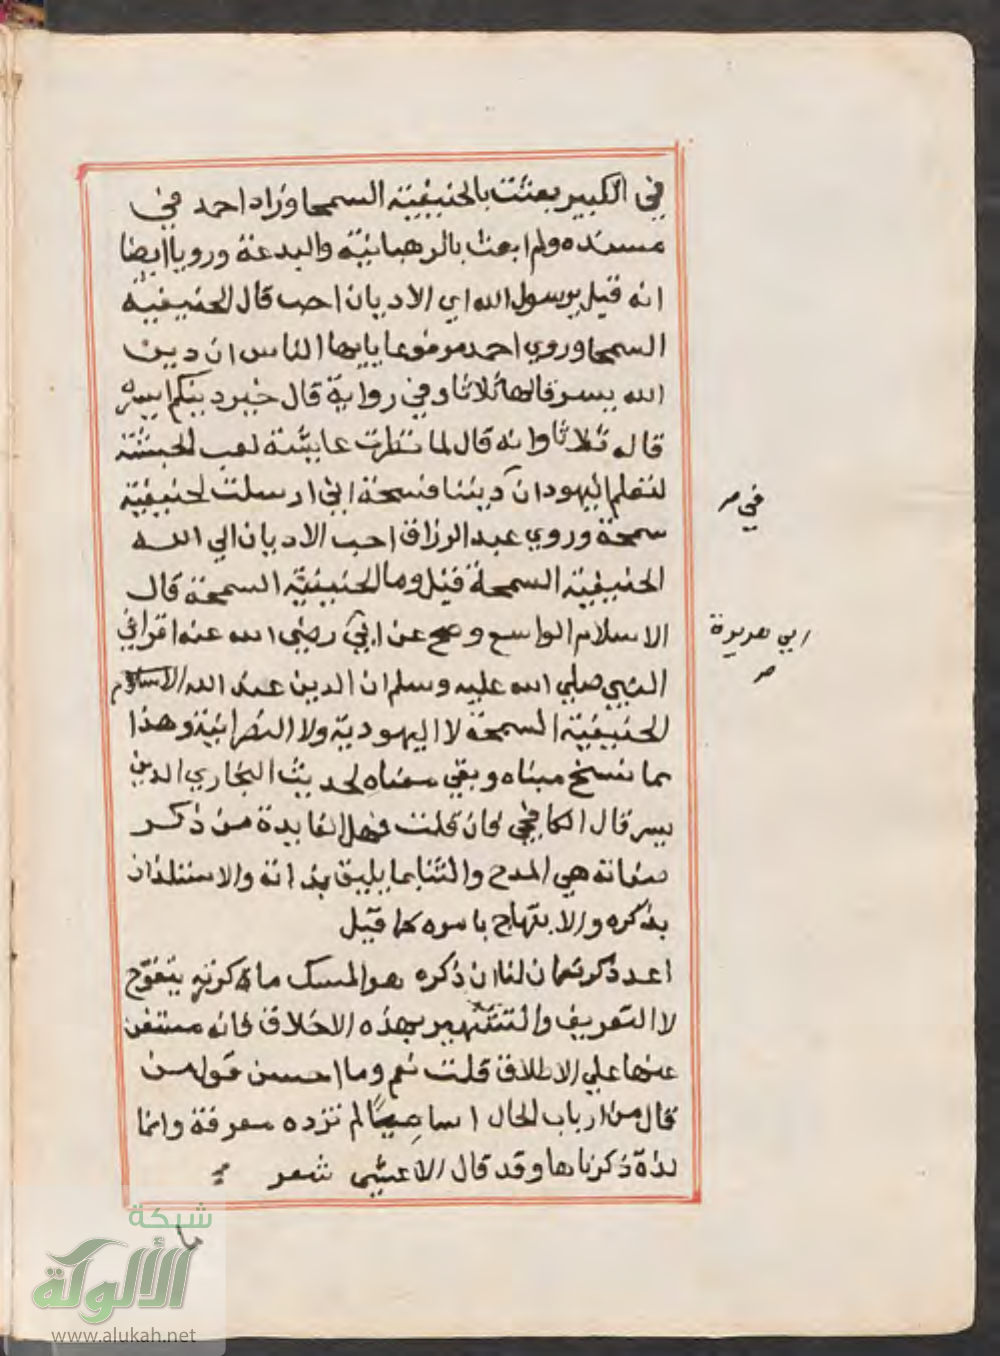 في الكبير بعثت بالحنيفية السمحا وزاد احمد في
مسنده ولم ابعث بالرهبانية والبدعة ورويا ايضا
انه قيل يرسول الله اي الاديان احب قال الحنيفية
السمحا وروي احمد مرفوعا يايها الناس ان دين
الله يسر قالها ثلاثا وفي رواية قال خير دينكم ايسره
قاله ثلاثا وانه قال لما نظرت عايشة لعب الحبشة
لتعلم اليهود ان ديننا فسحة اني ارسلت لحنيفية
سمحة وروي عبد الرزاق احب الاديان الي الله
الحنيفية السمحة قيل وما الحنيفية السمحة قال
الاسلام الواسع وصح عن ابي رضي الله عنه اقراني
النبي صلي الله عليه وسلم ان الدين عند الله الاسلام
الحنيفية السمحة لا اليهودية ولا النصرانية وهذا
مما نسخ مبناه وبقي معناه لحديث البخاري الدين
يسر قال الكافيجي فان قلت فهل الفايدة من ذكر
صفاته هي المدح والثنا بما يليق بذاته والاستلذاذ
بذكره والابتهاج باسره كما قيل
اعد ذكر نعمان لنا ان ذكره هو المسك ما كررته يتضوع
لا التعريف والتشهير بهذه الاخلاق فانه مستغن
عنها علي الاطلاق قلت نعم وما احسن قول من
قال من ارباب الحال اساميا لم تزده معرفة وانما
لذة ذكرناها وقد قال الاعشي شعر
في صر
ابي هريرة
صر
ما
شبكة
الألوكة
www.alukah.net